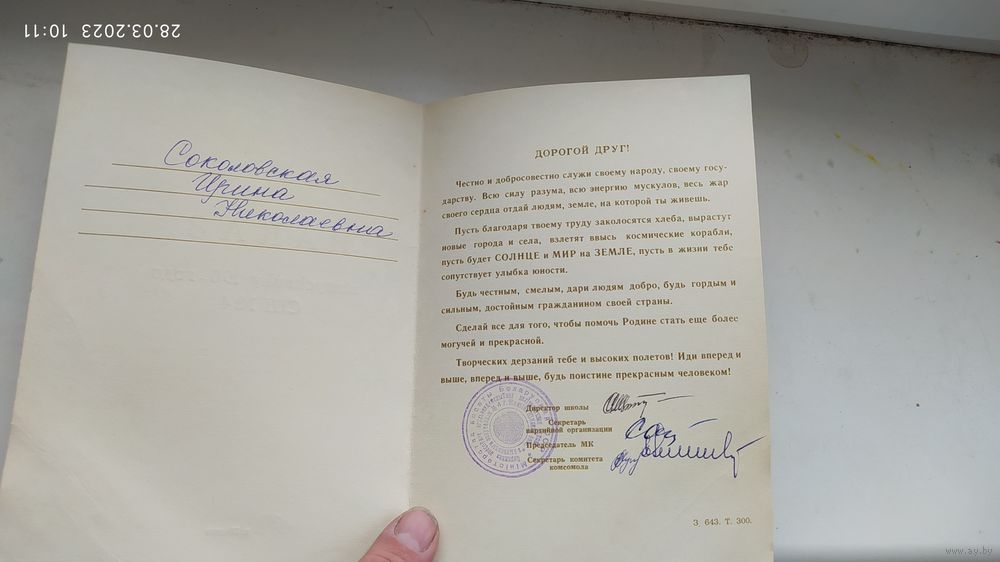 28.03.2023 10:11
Соколовская
Ирина
Николаевна
ДОРОГОЙ ДРУГ!
Честно и добросовестно служи своему народу, своему госу-
дарству. Всю силу разума, всю энергию мускулов, весь жар
своего сердца отдай людям, земле, на которой ты живешь.
Пусть благодаря твоему труду заколосятся хлеба, вырастут
новые города и села, взлетят ввысь космические корабли,
пусть будет СОЛНЦЕ и МИР на ЗЕМЛЕ, пусть в жизни тебе
сопутствует улыбка юности.
Будь честным, смелым, дари людям добро, будь гордым и
сильным, достойным гражданином своей страны.
Сделай все для того, чтобы помочь Родине стать еще более
могучей и прекрасной.
Творческих дерзаний тебе и высоких полетов! Иди вперед и
выше, вперед и выше, будь поистине прекрасным человеком!
Директор школы
Секретарь
партийной организации
Председатель МК
Секретарь комитета
комсомола
З. 643. Т. 300.
www.ay.by